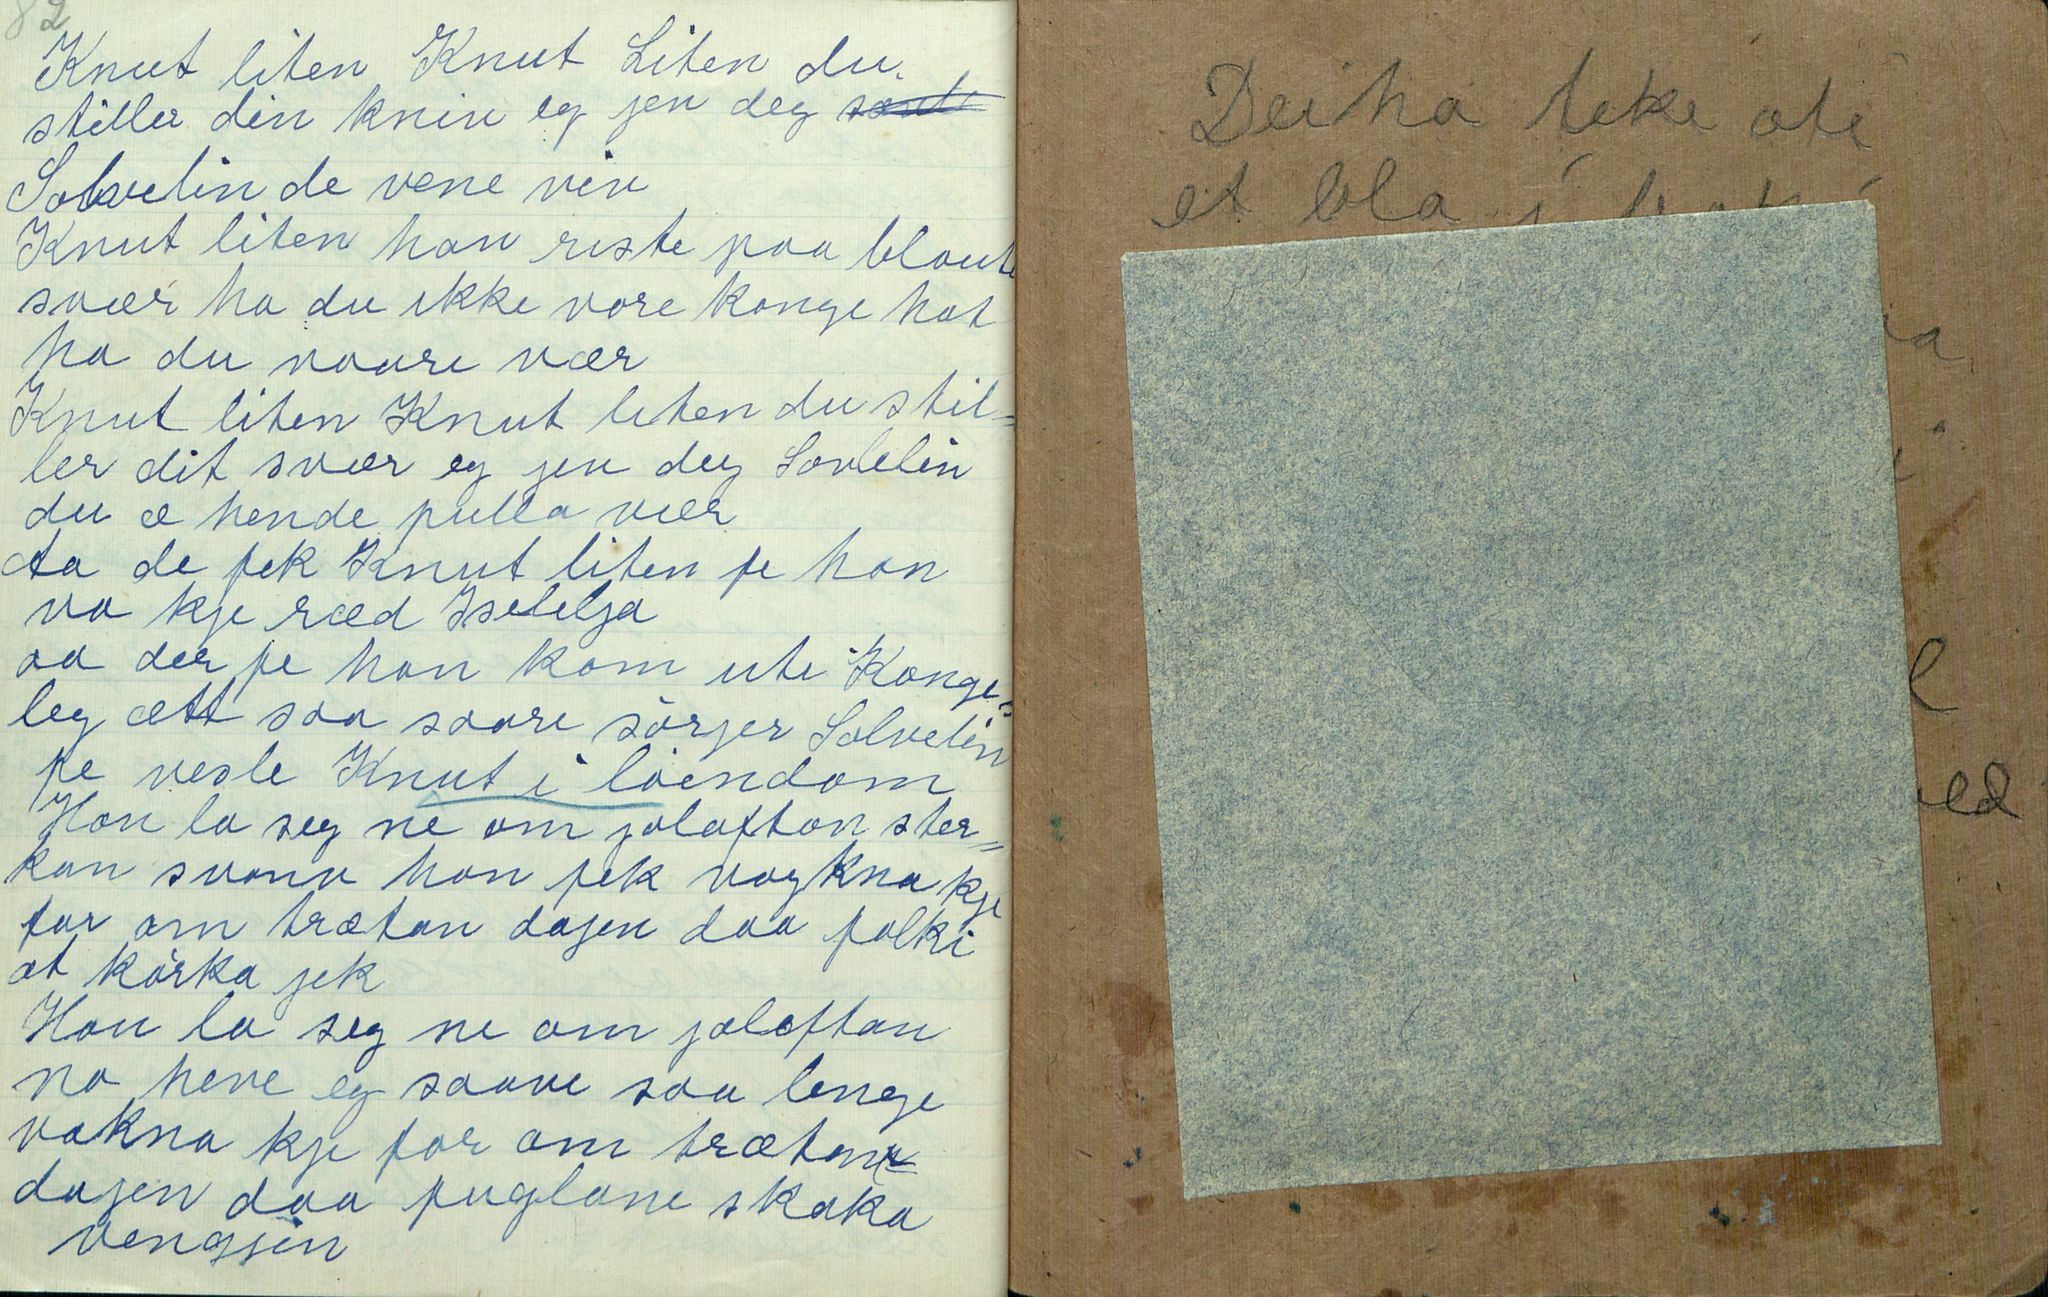 82
Knut liten Knut Liten du
stiller din kniv eg jev deg
Solvelin de vene viv
Knut liten han riste paa blaute
svær ha du ikke vore konge hat
ha du vaare vær
Knut liten Knut liten du stil=
ler dit svær eg jev deg Sovlelin
du æ hende fulla vær
ta de fek Knut liten fe han
va kje ræd Iselilja
aa der fe han kom uti Konge=
leg ætt saa saare sörjer Solvelin
fe vesle Knut i löendom
Han la seg ne om jolaftan ster=
kan svovnv han fek vogkna kje
for om trætan dajen daa folki
at körka jek
Han la seg ne om jolaftan
na heve eg saave saa lenge
vakna kje for om trætan
dajen daa fuglane skaka
vengjin
Dei ha teke uti
et bla i